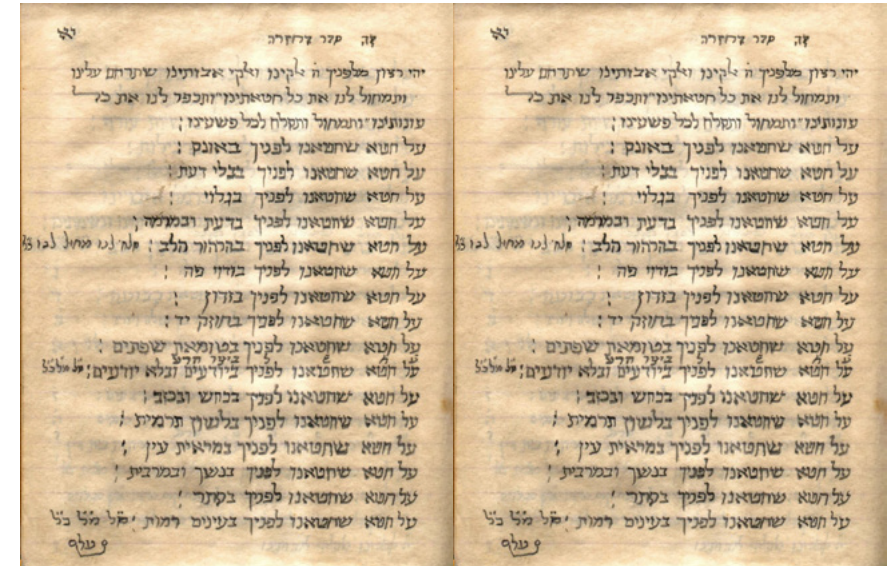 יהי רצון מלפניך אבותינו שתרחם עלינו
ותמחול לנו את כל חטאתינו ותכפר לנו את כל
עונותינו ותמחול ותסלח לכל פשעינו
על חטא שחטאנו לפניך באונס
על חטא שחטאנו לפניך בבלי דעת
על חטא שחטאנו לפניך בגלוי
על חטא שחטאנו לפניך בדעת ובמרמה
על חטא שחטאנו לפניך בהרהור הלב
על חטא שחטאנו לפניך בוידוי פה
על חטא שחטאנו לפניך בזדון
על חטא שחטאנו לפניך בחוזק יד
על חטא שחטאנו לפניך בטומאת שפתים
ביצר הרע
על חטא שחטאנו לפניך ביודעים ובלא יודעים
על חטא שחטאנו לפניך בכחש ובכזב
על חטא שחטאנו לפניך בלשון תרמית
על חטא שחטאנו לפניך במראית עין
על חטא שחטאנו לפניך בנשך ובמרבית
על חטא שחטאנו לפניך בסתר
על חטא שחטאנו לפניך בעינים רמות
יהי רצון מלפניך אבותינו שתרחם עלינו
ותמחול לנו את כל חטאתינו ותכפר לנו את כל
עונותינו ותמחול ותסלח לכל פשעינו
על חטא שחטאנו לפניך באונס
על חטא שחטאנו לפניך בבלי דעת
על חטא שחטאנו לפניך בגלוי
על חטא שחטאנו לפניך בדעת ובמרמה
על חטא שחטאנו לפניך בהרהור הלב
על חטא שחטאנו לפניך בוידוי פה
על חטא שחטאנו לפניך בזדון
על חטא שחטאנו לפניך בחוזק יד
על חטא שחטאנו לפניך בטומאת שפתים
ביצר הרע
על חטא שחטאנו לפניך ביודעים ובלא יודעים
על חטא שחטאנו לפניך בכחש ובכזב
על חטא שחטאנו לפניך בלשון תרמית
על חטא שחטאנו לפניך במראית עין
על חטא שחטאנו לפניך בנשך ובמרבית
על חטא שחטאנו לפניך בסתר
על חטא שחטאנו לפניך בעינים רמות